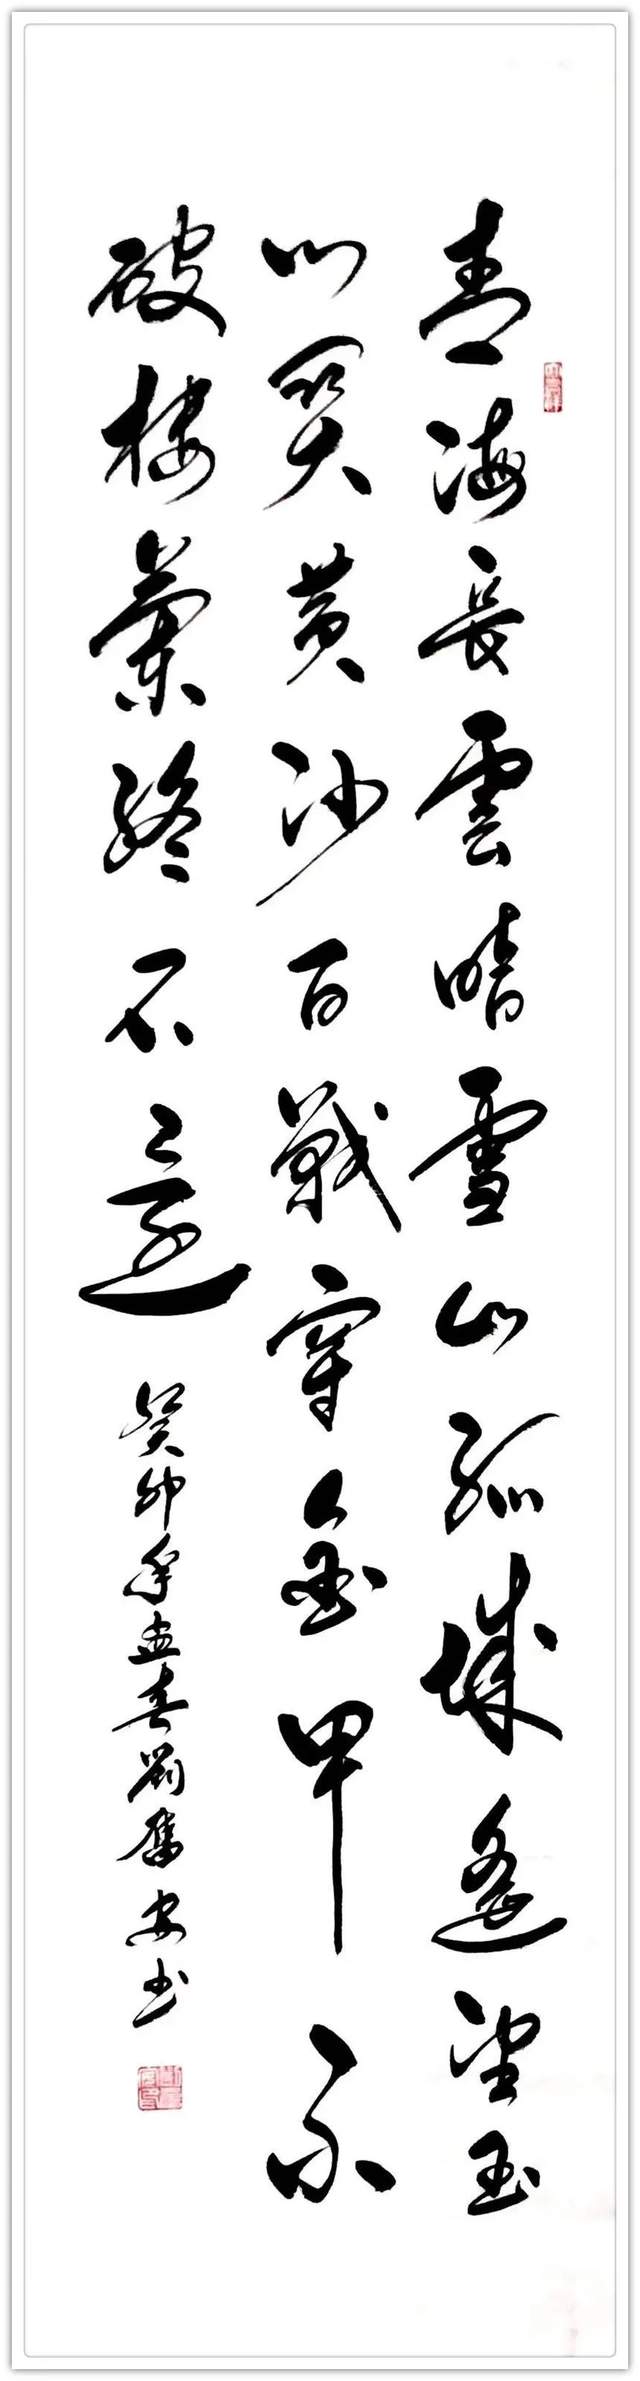 青海長雲暗雪山孤城遙望玉
門關黄沙百戰穿金甲不
破樓蘭終不還
癸卯年孟春劉安书